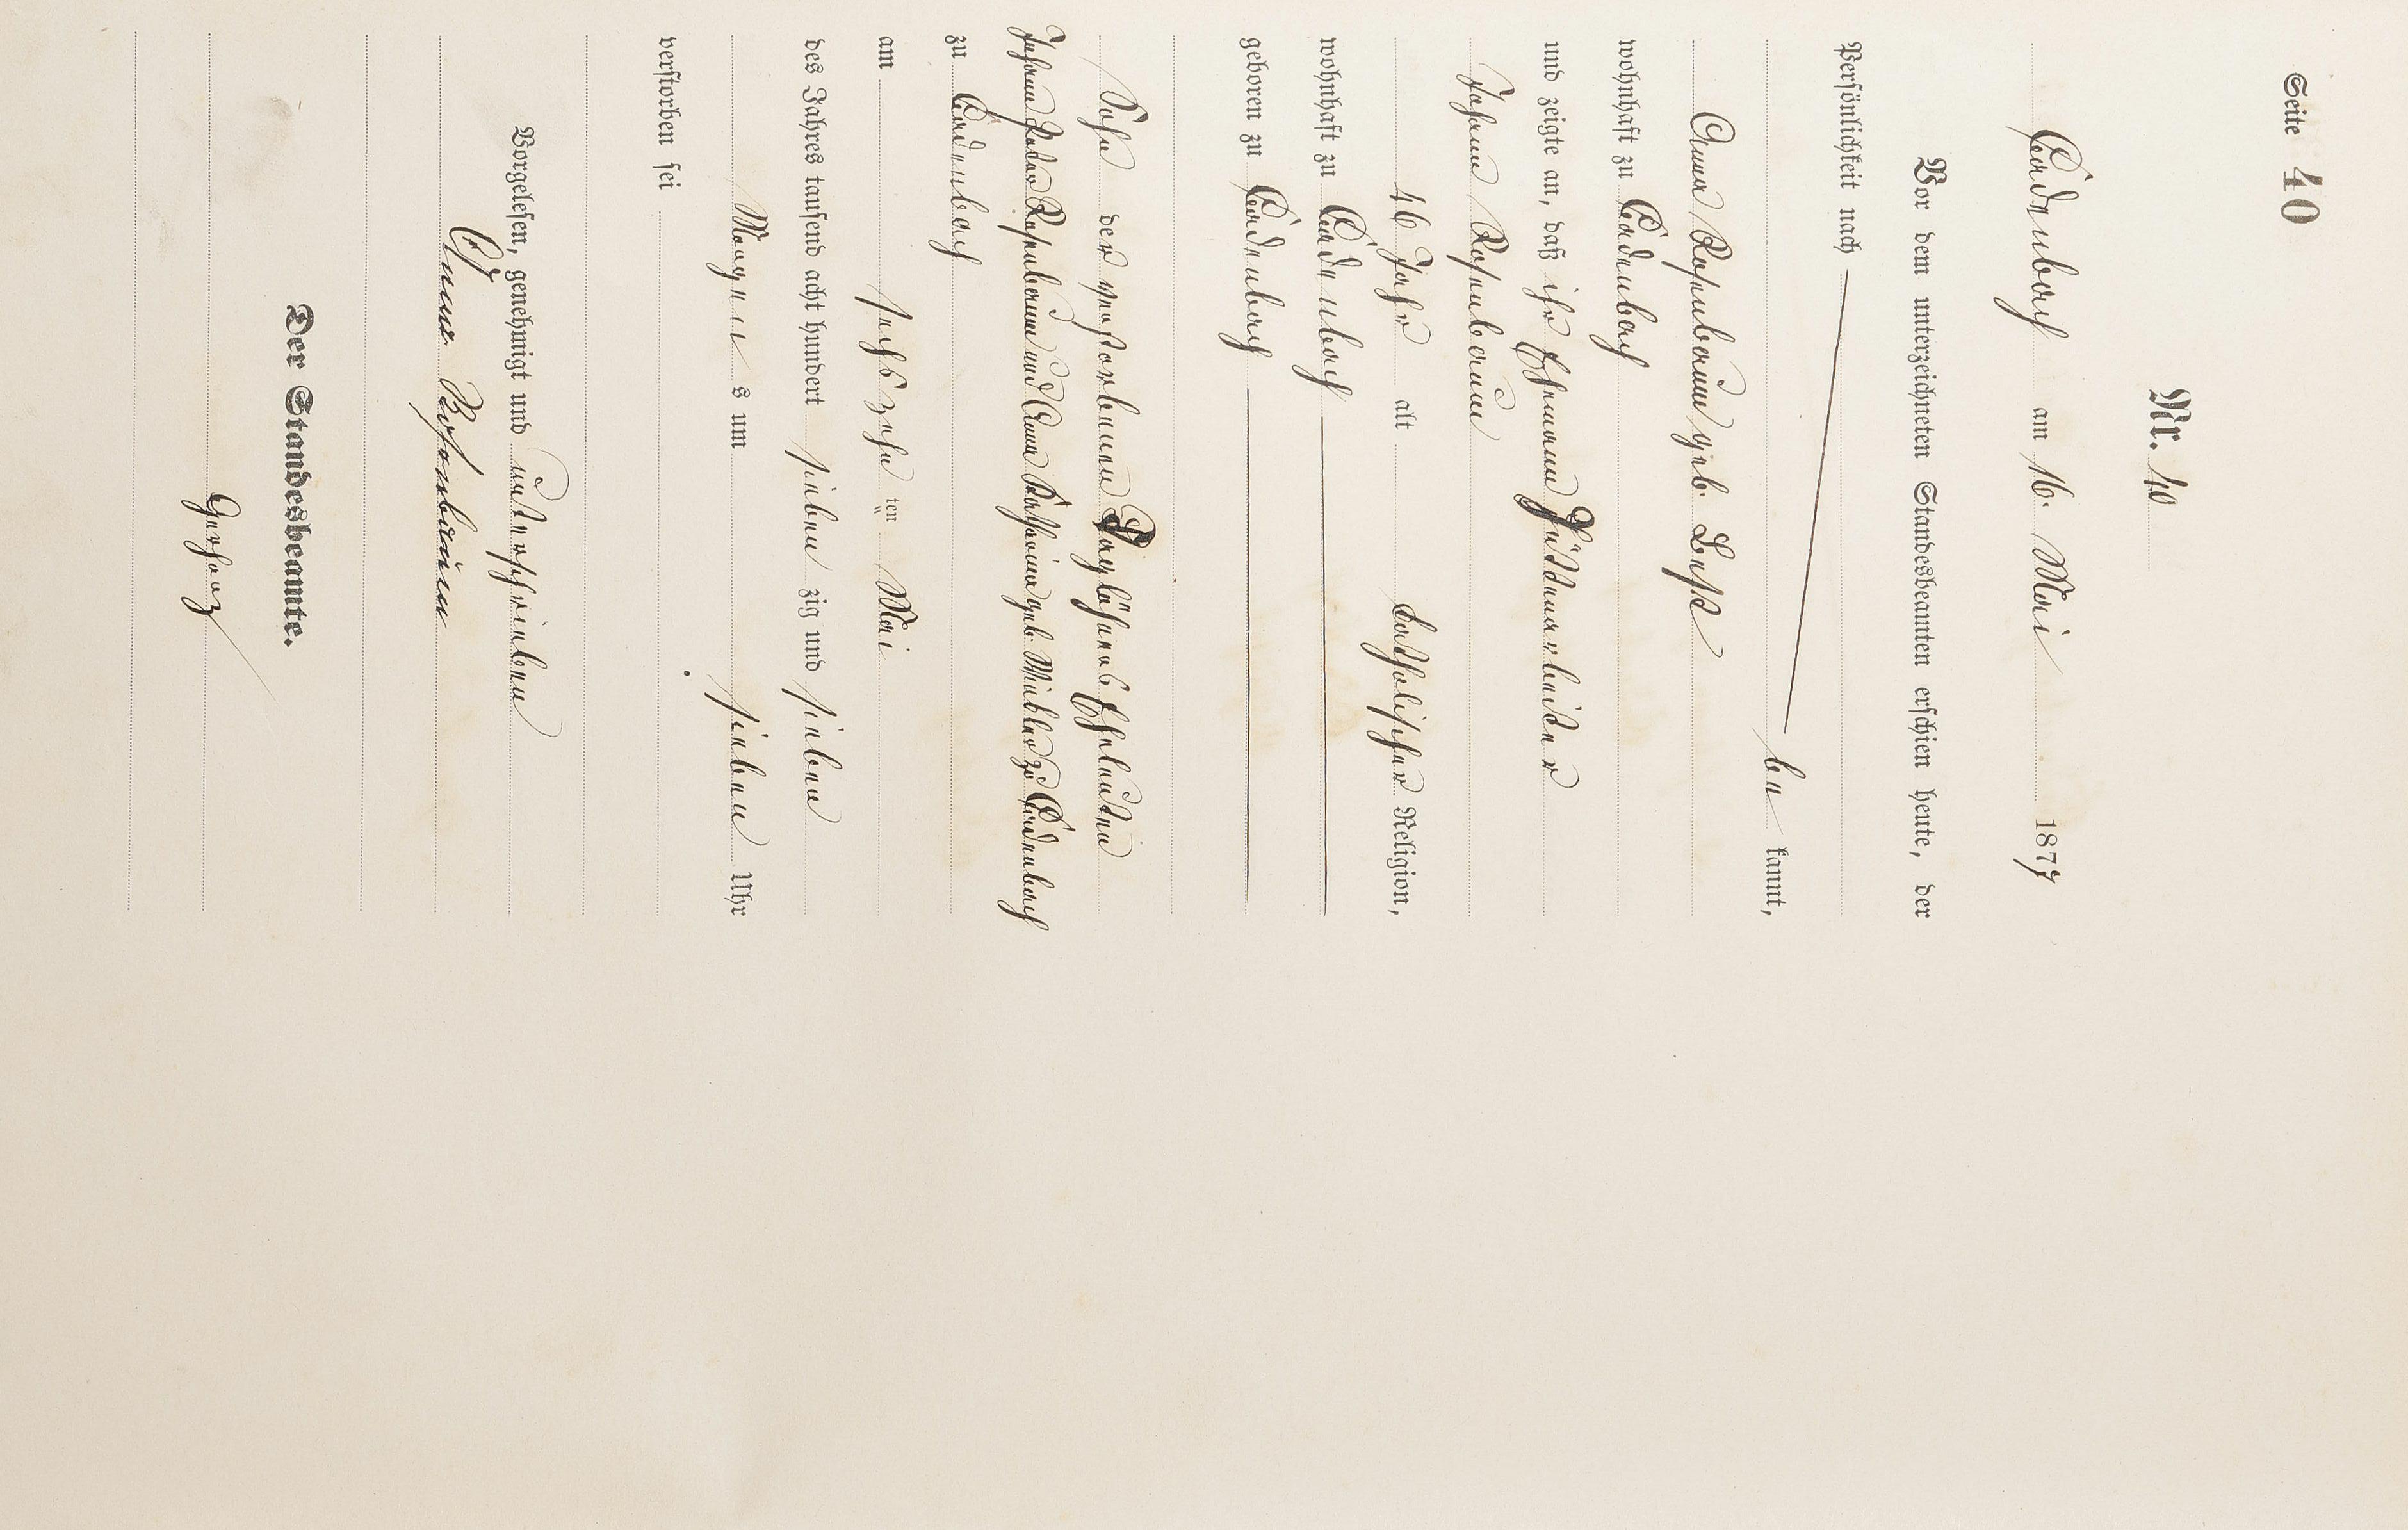 Seite 40
Nr. 40
Cadenbach am 16. Mai 1877
Vor dem unterzeichneten Standesbeamten erschien heute, der
Persönlichkeit nach
be kannt,
Anna Rosenbaum geb.
wohnhaft zu Cadenbach
und zeigte an, daß ihr Ehemann Hüttenarbeiter
Johann Rosenbaum
46 Jahr alt katholischer Religion,
wohnhaft zu Cadenbach
geboren zu Cadenbach
Sohn der verstorbenen Taglöhners Eheleuten
Johann Peter Rosenbaum und Anna Katharina geb. zu Cadenbach
zu Cadenbach
am sechszehn ten Mai
des Jahres tausend acht hundert sieben zig und sieben
Morgen s um sieben Uhr
verstorben sei
Vorgelesen, genehmigt und unterschrieben
Anna Rosenbaum
Der Standesbeamte.
Gerharz